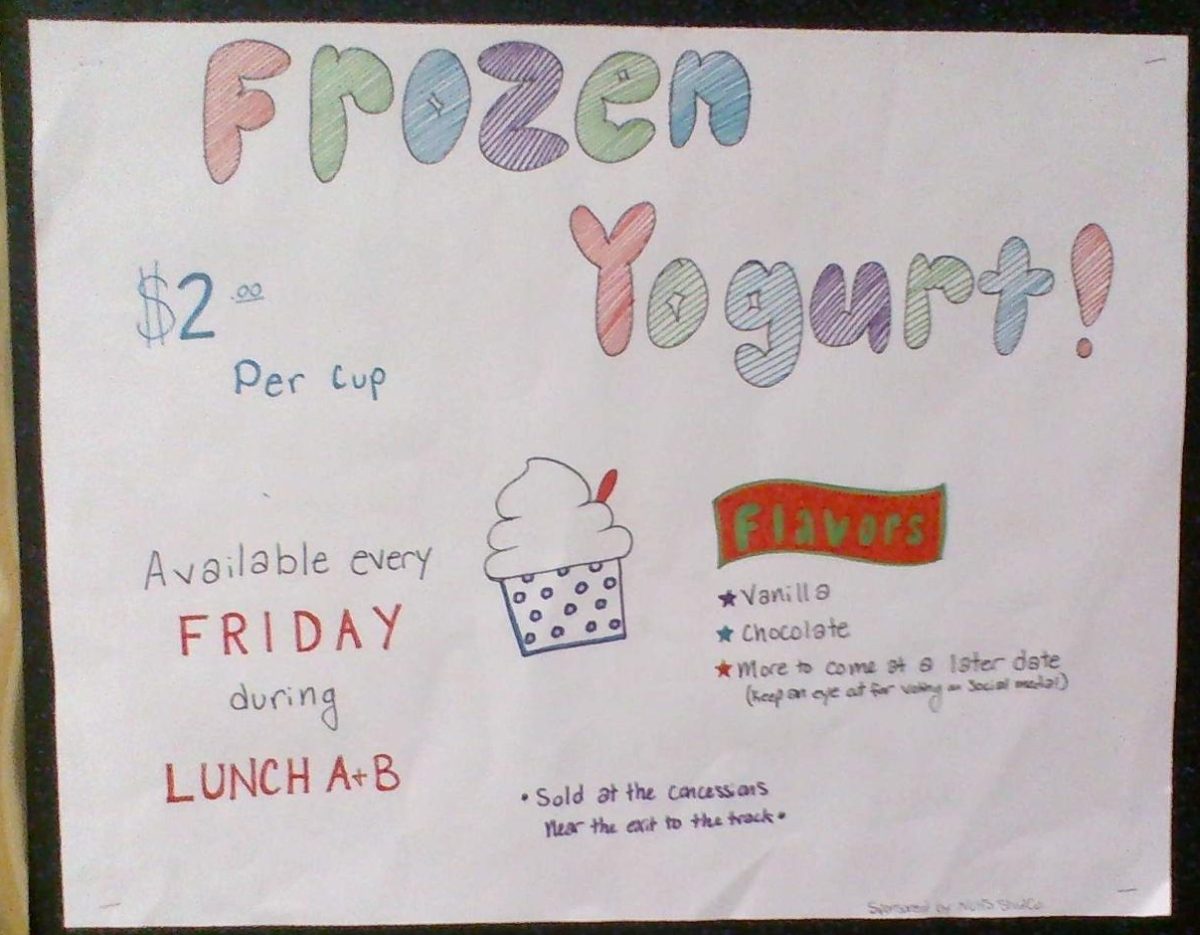 Frozen
Yogurt!
$2.00
Per Cup
Available every
FRIDAY
during
LUNCH A+B
Flavors
Vanilla
Chocolate
More to come at a later date
(Keep an eye at for voting on Social media!)
• Sold at the concessions
Near the exit to the track •
Sponsored by StuCo